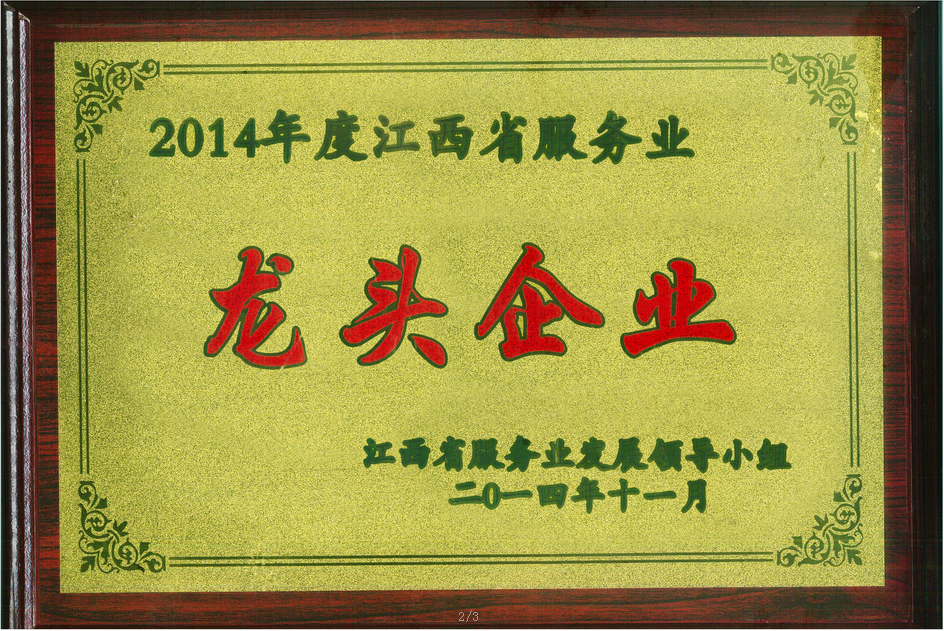 2014年度江西省服务业
龙头企业
江西省服务业发展领导小组
二0一四年十一月
2/3